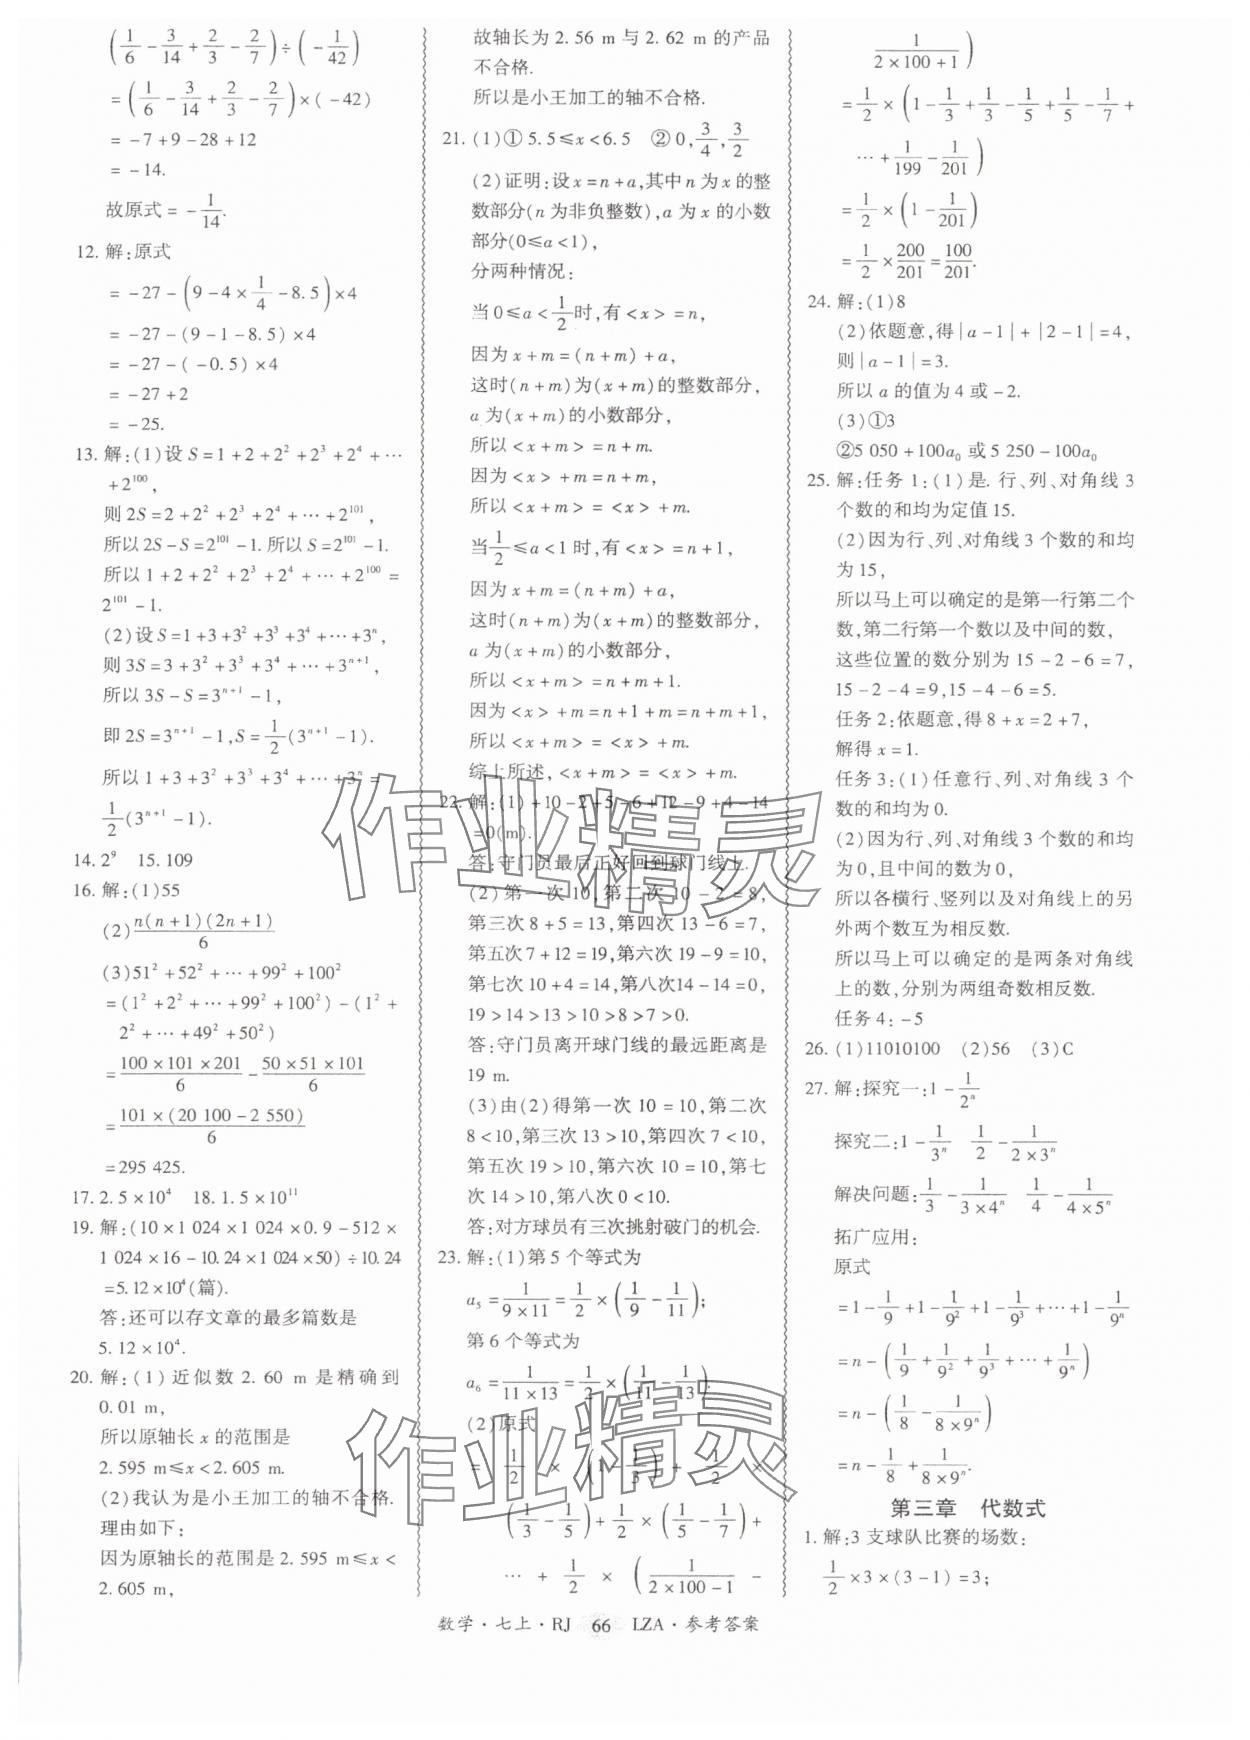 (1/6 - 3/14 + 2/3 - 2/7) ÷ (-1/42)
= (1/6 - 3/14 + 2/3 - 2/7) × (-42)
= -7+9-28+12
= -14.
故原式 = -1/14.
12. 解:原式
= -27 - (9-4×1/4-8.5)×4
= -27-(9-1-8.5)×4
= -27-(-0.5)×4
= -27+2
= -25.
13. 解:(1)设 S=1+2+2²+2³+2⁴+⋯
+2¹⁰⁰,
则 2S=2+2²+2³+2⁴+⋯+2¹⁰¹,
所以 2S-S=2¹⁰¹-1. 所以 S=2¹⁰¹-1.
所以 1+2+2²+2³+2⁴+⋯+2¹⁰⁰=
2¹⁰¹-1.
(2)设 S=1+3+3²+3³+3⁴+⋯+3ⁿ,
则 3S=3+3²+3³+3⁴+⋯+3ⁿ⁺¹,
所以 3S-S=3ⁿ⁺¹-1,
即 2S=3ⁿ⁺¹-1,S=1/2(3ⁿ⁺¹-1).
所以 1+3+3²+3³+3⁴+⋯+3ⁿ=
1/2(3ⁿ⁺¹-1).
14. 2⁹ 15. 109
16. 解:(1)55
(2) n(n+1)(2n+1)/6
(3)51²+52²+⋯+99²+100²
=(1²+2²+⋯+99²+100²)-(1²+
2²+⋯+49²+50²)
= 100×101×201/6 - 50×51×101/6
= 101×(20 100-2 550)/6
=295 425.
17. 2.5×10⁴ 18. 1.5×10¹¹
19. 解:(10×1 024×1 024×0.9-512×
1 024×16-10.24×1 024×50)÷10.24
=5.12×10⁴(篇).
答:还可以存文章的最多篇数是
5.12×10⁴.
20. 解:(1)近似数 2.60 m 是精确到
0.01 m,
所以原轴长 x 的范围是
2.595 m≤x<2.605 m.
(2)我认为是小王加工的轴不合格.
理由如下:
因为原轴长的范围是 2.595 m≤x<
2.605 m,
故轴长为 2.56 m 与 2.62 m 的产品
不合格.
所以是小王加工的轴不合格.
21. (1)①5.5≤x<6.5 ②0,3/4,3/2
(2)证明:设 x=n+a,其中 n 为 x 的整
数部分(n 为非负整数),a 为 x 的小数
部分(0≤a<1),
分两种情况:
当 0≤a<1/2时,有<x>=n,
因为 x+m=(n+m)+a,
这时(n+m)为(x+m)的整数部分,
a 为(x+m)的小数部分,
所以<x+m>=n+m.
因为<x>+m=n+m,
所以<x+m>=<x>+m.
当1/2≤a<1 时,有<x>=n+1,
因为 x+m=(n+m)+a,
这时(n+m)为(x+m)的整数部分,
a 为(x+m)的小数部分,
所以<x+m>=n+m+1.
因为<x>+m=n+1+m=n+m+1,
所以<x+m>=<x>+m.
综上所述,<x+m>=<x>+m.
22. 解:(1)+10-2+5-6+12-9+4-14
=0(m).
答:守门员最后正好回到球门线上.
(2)第一次 10,第二次 10-2=8,
第三次 8+5=13,第四次 13-6=7,
第五次 7+12=19,第六次 19-9=10,
第七次 10+4=14,第八次14-14=0,
19>14>13>10>8>7>0.
答:守门员离开球门线的最远距离是
19 m.
(3)由(2)得第一次 10=10,第二次
8<10,第三次 13>10,第四次 7<10,
第五次 19>10,第六次 10=10,第七
次 14>10,第八次 0<10.
答:对方球员有三次挑射破门的机会.
23. 解:(1)第 5 个等式为
a₅ = 1/(9×11) = 1/2 × (1/9 - 1/11);
第 6 个等式为
a₆ = 1/(11×13) = 1/2 × (1/11 - 1/13).
(2)原式
= 1/2 × (1 - 1/3) + 1/2 ×
(1/3 - 1/5) + 1/2 × (1/5 - 1/7) +
⋯ + 1/2 × (1/(2×100-1) -
1/(2×100+1))
= 1/2 × (1 - 1/3 + 1/3 - 1/5 + 1/5 - 1/7 +
⋯ + 1/199 - 1/201)
= 1/2 × (1 - 1/201)
= 1/2 × 200/201 = 100/201.
24. 解:(1)8
(2)依题意,得|a-1|+|2-1|=4,
则|a-1|=3.
所以 a 的值为 4 或-2.
(3)①3
②5 050+100a₀ 或 5 250-100a₀
25. 解:任务 1:(1)是. 行、列、对角线 3
个数的和均为定值 15.
(2)因为行、列、对角线 3 个数的和均
为 15,
所以马上可以确定的是第一行第二个
数,第二行第一个数以及中间的数,
这些位置的数分别为 15-2-6=7,
15-2-4=9,15-4-6=5.
任务 2:依题意,得 8+x=2+7,
解得 x=1.
任务 3:(1)任意行、列、对角线 3 个
数的和均为 0.
(2)因为行、列、对角线 3 个数的和均
为 0,且中间的数为 0,
所以各横行、竖列以及对角线上的另
外两个数互为相反数.
所以马上可以确定的是两条对角线
上的数,分别为两组奇数相反数.
任务 4:-5
26. (1)11010100 (2)56 (3)C
27. 解:探究一:1 - 1/2ⁿ
探究二:1 - 1/3ⁿ 1/2 - 1/(2×3ⁿ)
解决问题:1/3 - 1/(3×4ⁿ) 1/4 - 1/(4×5ⁿ)
拓广应用:
原式
= 1 - 1/9 + 1 - 1/9² + 1 - 1/9³ + ⋯ + 1 - 1/9ⁿ
= n - (1/9 + 1/9² + 1/9³ + ⋯ + 1/9ⁿ)
= n - (1/8 - 1/(8×9ⁿ))
= n - 1/8 + 1/(8×9ⁿ).
第三章 代数式
1. 解:3 支球队比赛的场数:
1/2×3×(3-1)=3;
数学·七上·RJ 66 LZA·参考答案
作业精灵
作业精灵